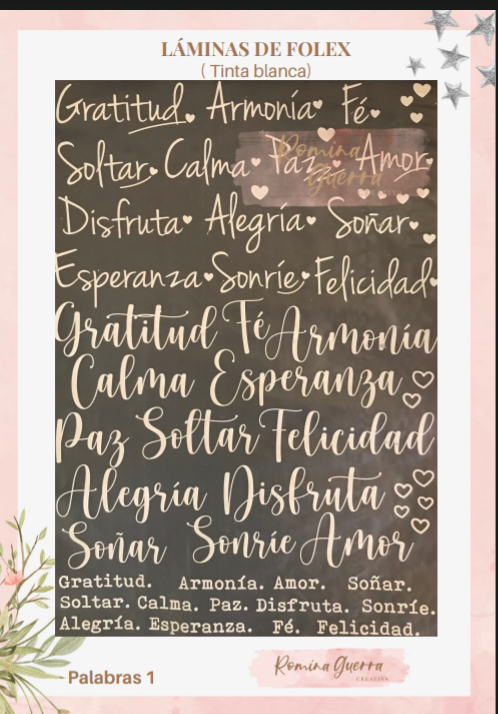 LÁMINAS DE FOLEX
( Tinta blanca)
Gratitud Armonía Fé
Soltar Calma Paz Amor
Romina
Guerra
Disfruta Alegría Soñar
Esperanza Sonríe Felicidad
Gratitud Fé Armonía
Calma Esperanza
Paz Soltar Felicidad
Alegría Disfruta
Soñar Sonríe Amor
Gratitud. Armonía. Amor. Soñar.
Soltar. Calma. Paz. Disfruta. Sonríe.
Alegría. Esperanza. Fé. Felicidad.
Romina Guerra
CREATIVA
Palabras 1